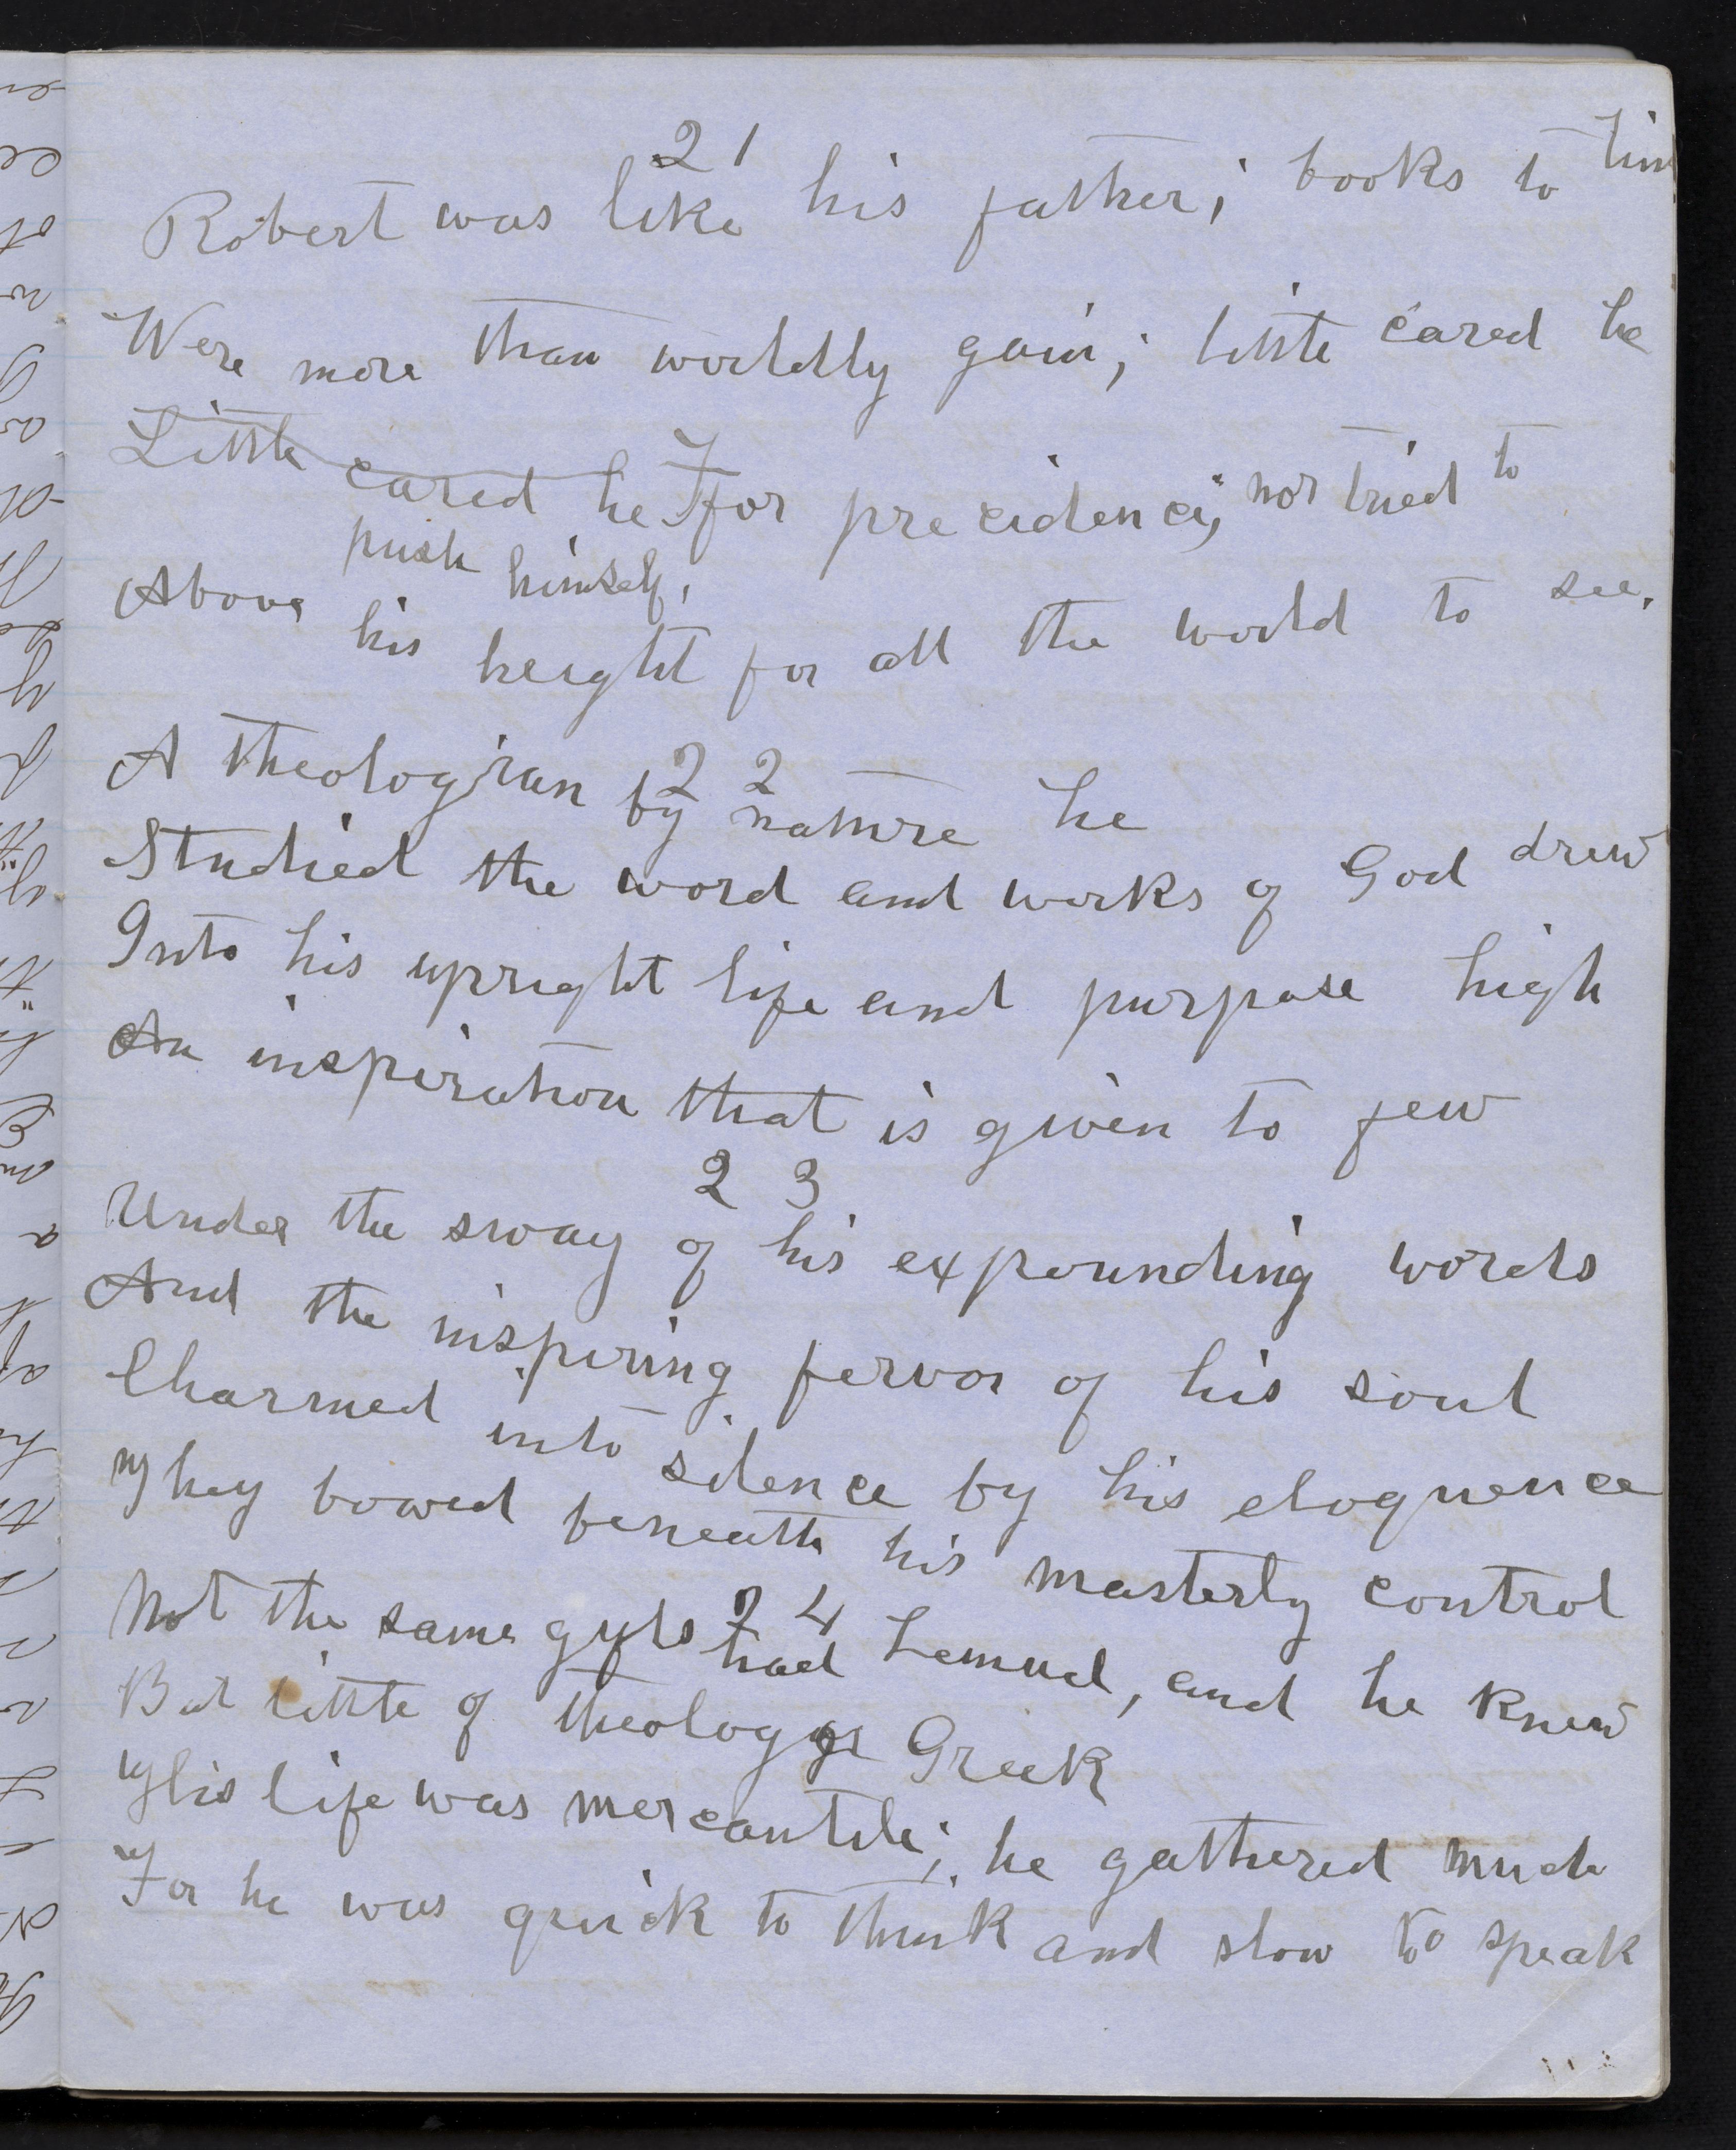 21
Robert was like his father; books to him
Were more than worldly gain; little cared he
Little cared he For precidence, nor tried to
push himself,
Above his height for all the world to see.
22
A theologian by nature he
Studied the word and works of God drew
Into his upright life and purpose high
An inspiration that is given to few
23
Under the sway of his expounding words
And the inspiring fervor of his soul
Charmed into silence by his eloquence
They bowed beneath his masterly control
24
Not the same gifts had Lemuel, and he knew
But little of theology or Greek
His life was mercantile; he gathered much
For he was quick to think and slow to speak